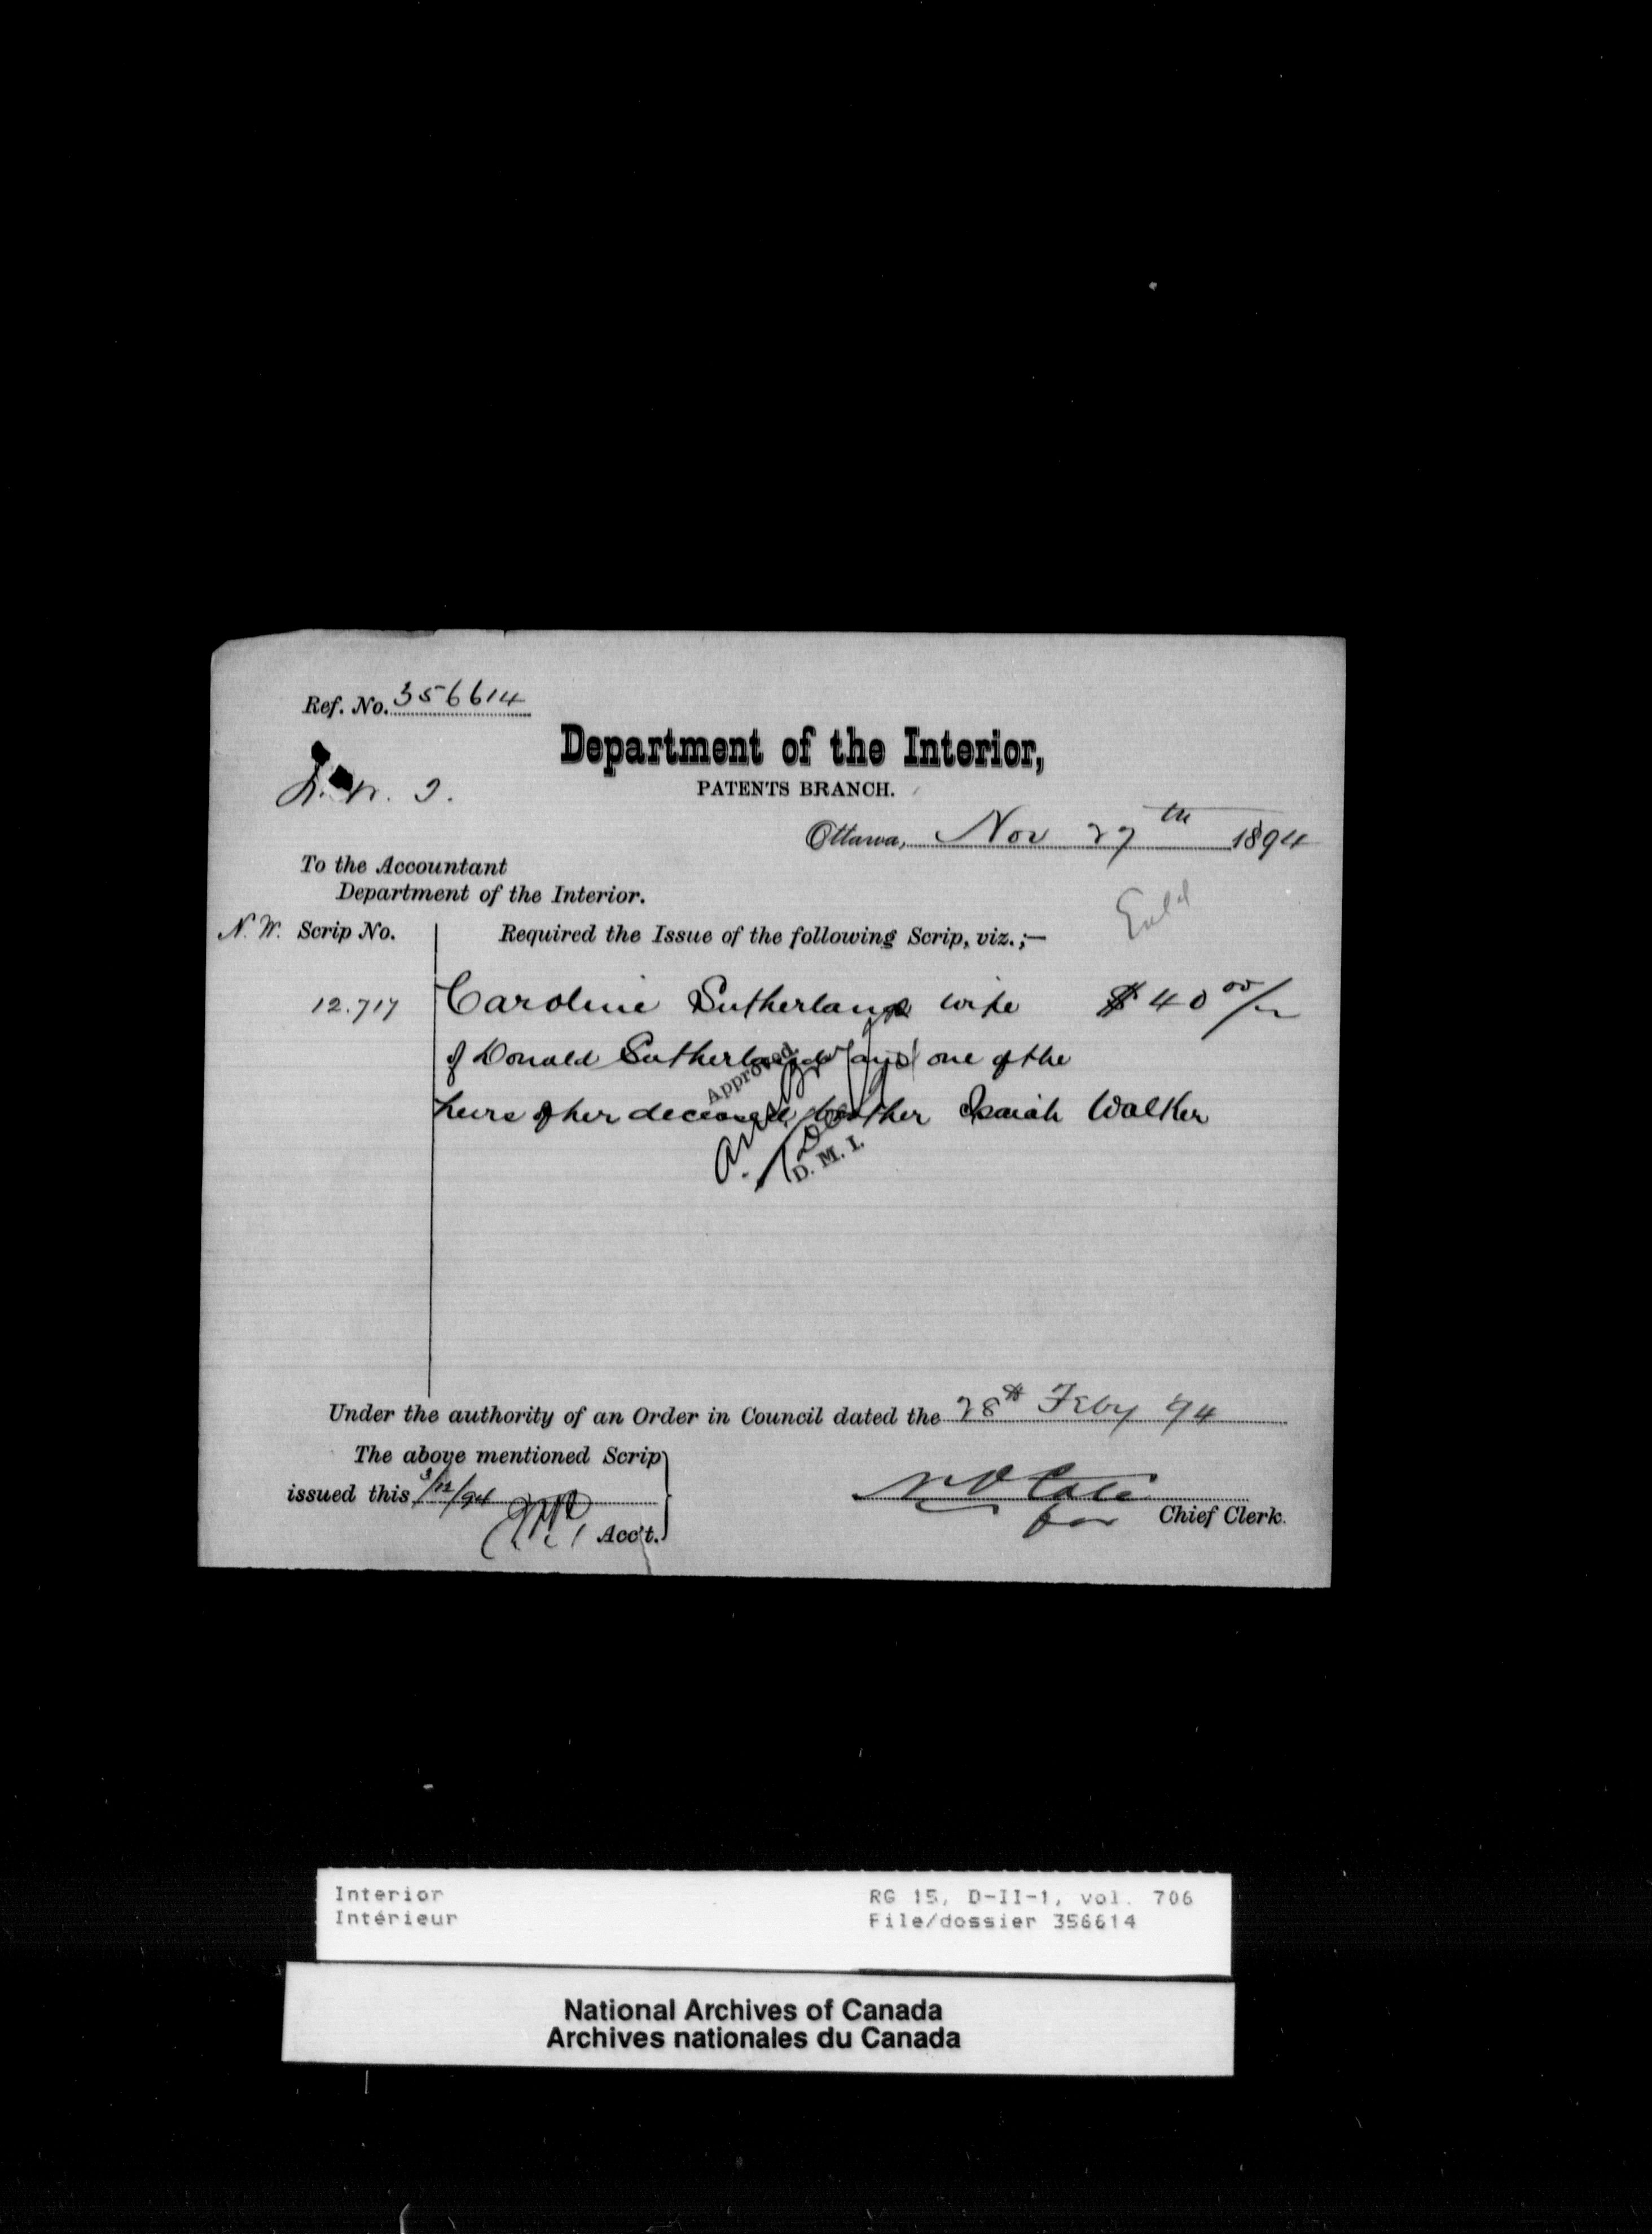 Ref. No. 356614
Department of the Interior,
PATENTS BRANCH.
Ottawa, Nov 27th 1894
To the Accountant
Department of the Interior.
N. W. Scrip No.
Required the Issue of the following Scrip, viz.;—
12.717 Caroline Sutherland wife $40 00/
of Donald Sutherland and one of the
heirs of her deceased brother Isaiah Walker
Approved
D. M. I.
Under the authority of an Order in Council dated the 28th Feby 94
The above mentioned Scrip
issued this 3/12/94
Acc't.
for Chief Clerk.
Interior
Intérieur
RG 15, D-II-1, vol. 706
File/dossier 356614
National Archives of Canada
Archives nationales du Canada